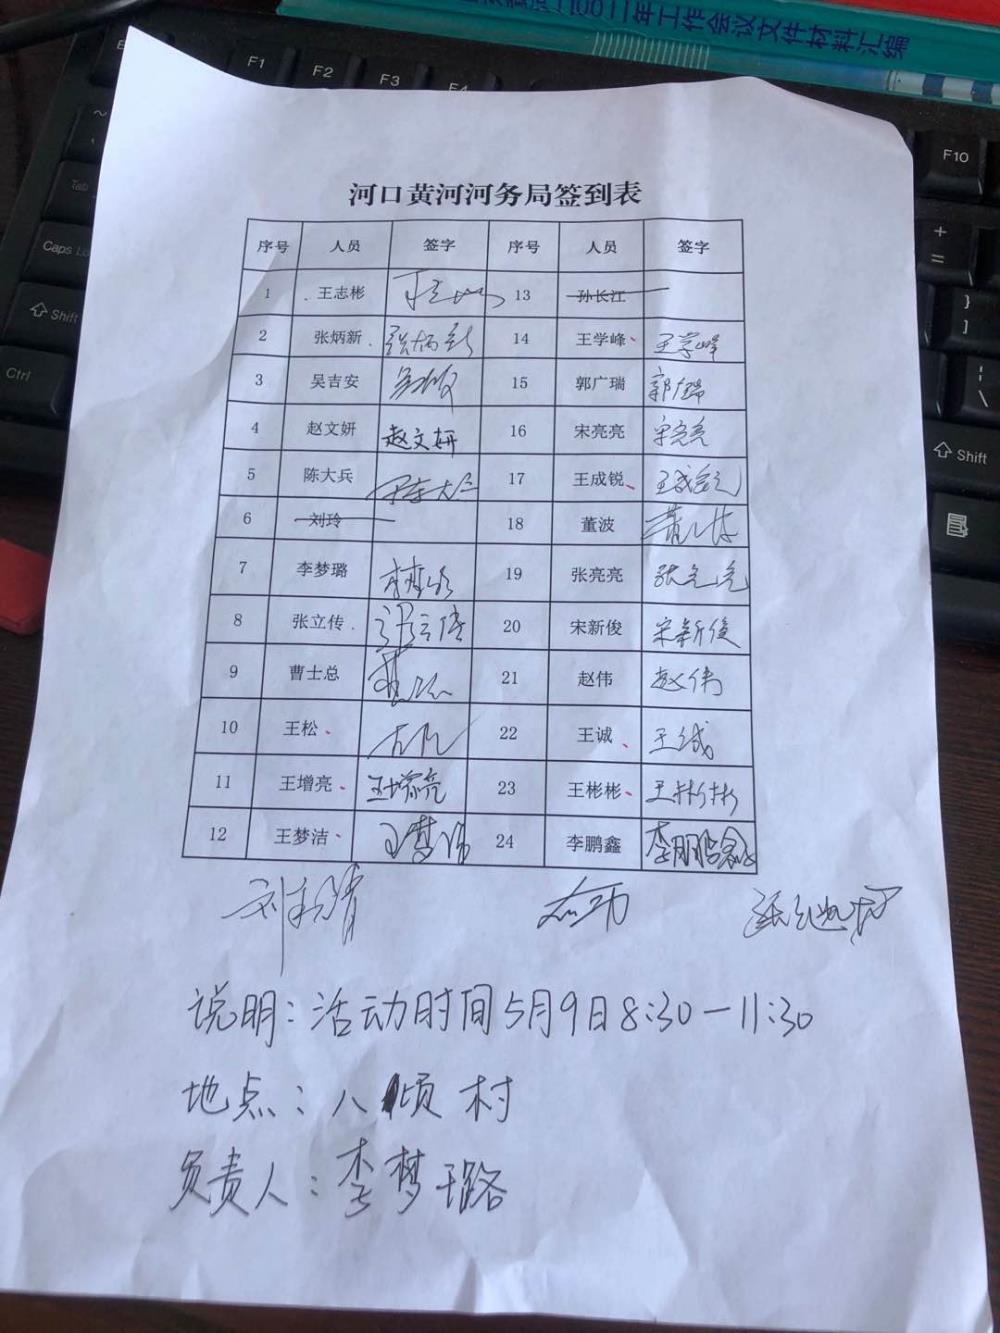 二〇二二年工作会议文件材料汇编
F1
F2
F3
F4
F10
Tab
Caps
Shift
Ctrl
+
=
}
]
|
\
Shift
河口黄河河务局签到表
序号 人员 签字 序号 人员 签字
1 王志彬 13 孙长江
2 张炳新 张炳新 14 王学峰 王学峰
3 吴吉安 15 郭广瑞 郭广瑞
4 赵文妍 赵文妍 16 宋亮亮 宋亮亮
5 陈大兵 17 王成锐 王成锐
6 刘玲 18 董波 董波
7 李梦璐 李梦璐 19 张亮亮 张亮亮
8 张立传 张立传 20 宋新俊 宋新俊
9 曹士总 21 赵伟 赵伟
10 王松 22 王诚 王诚
11 王增亮 王增亮 23 王彬彬 王彬彬
12 王梦洁 王梦洁 24 李鹏鑫 李鹏鑫
说明：活动时间5月9日8:30—11:30
地点：八顷村
负责人：李梦璐